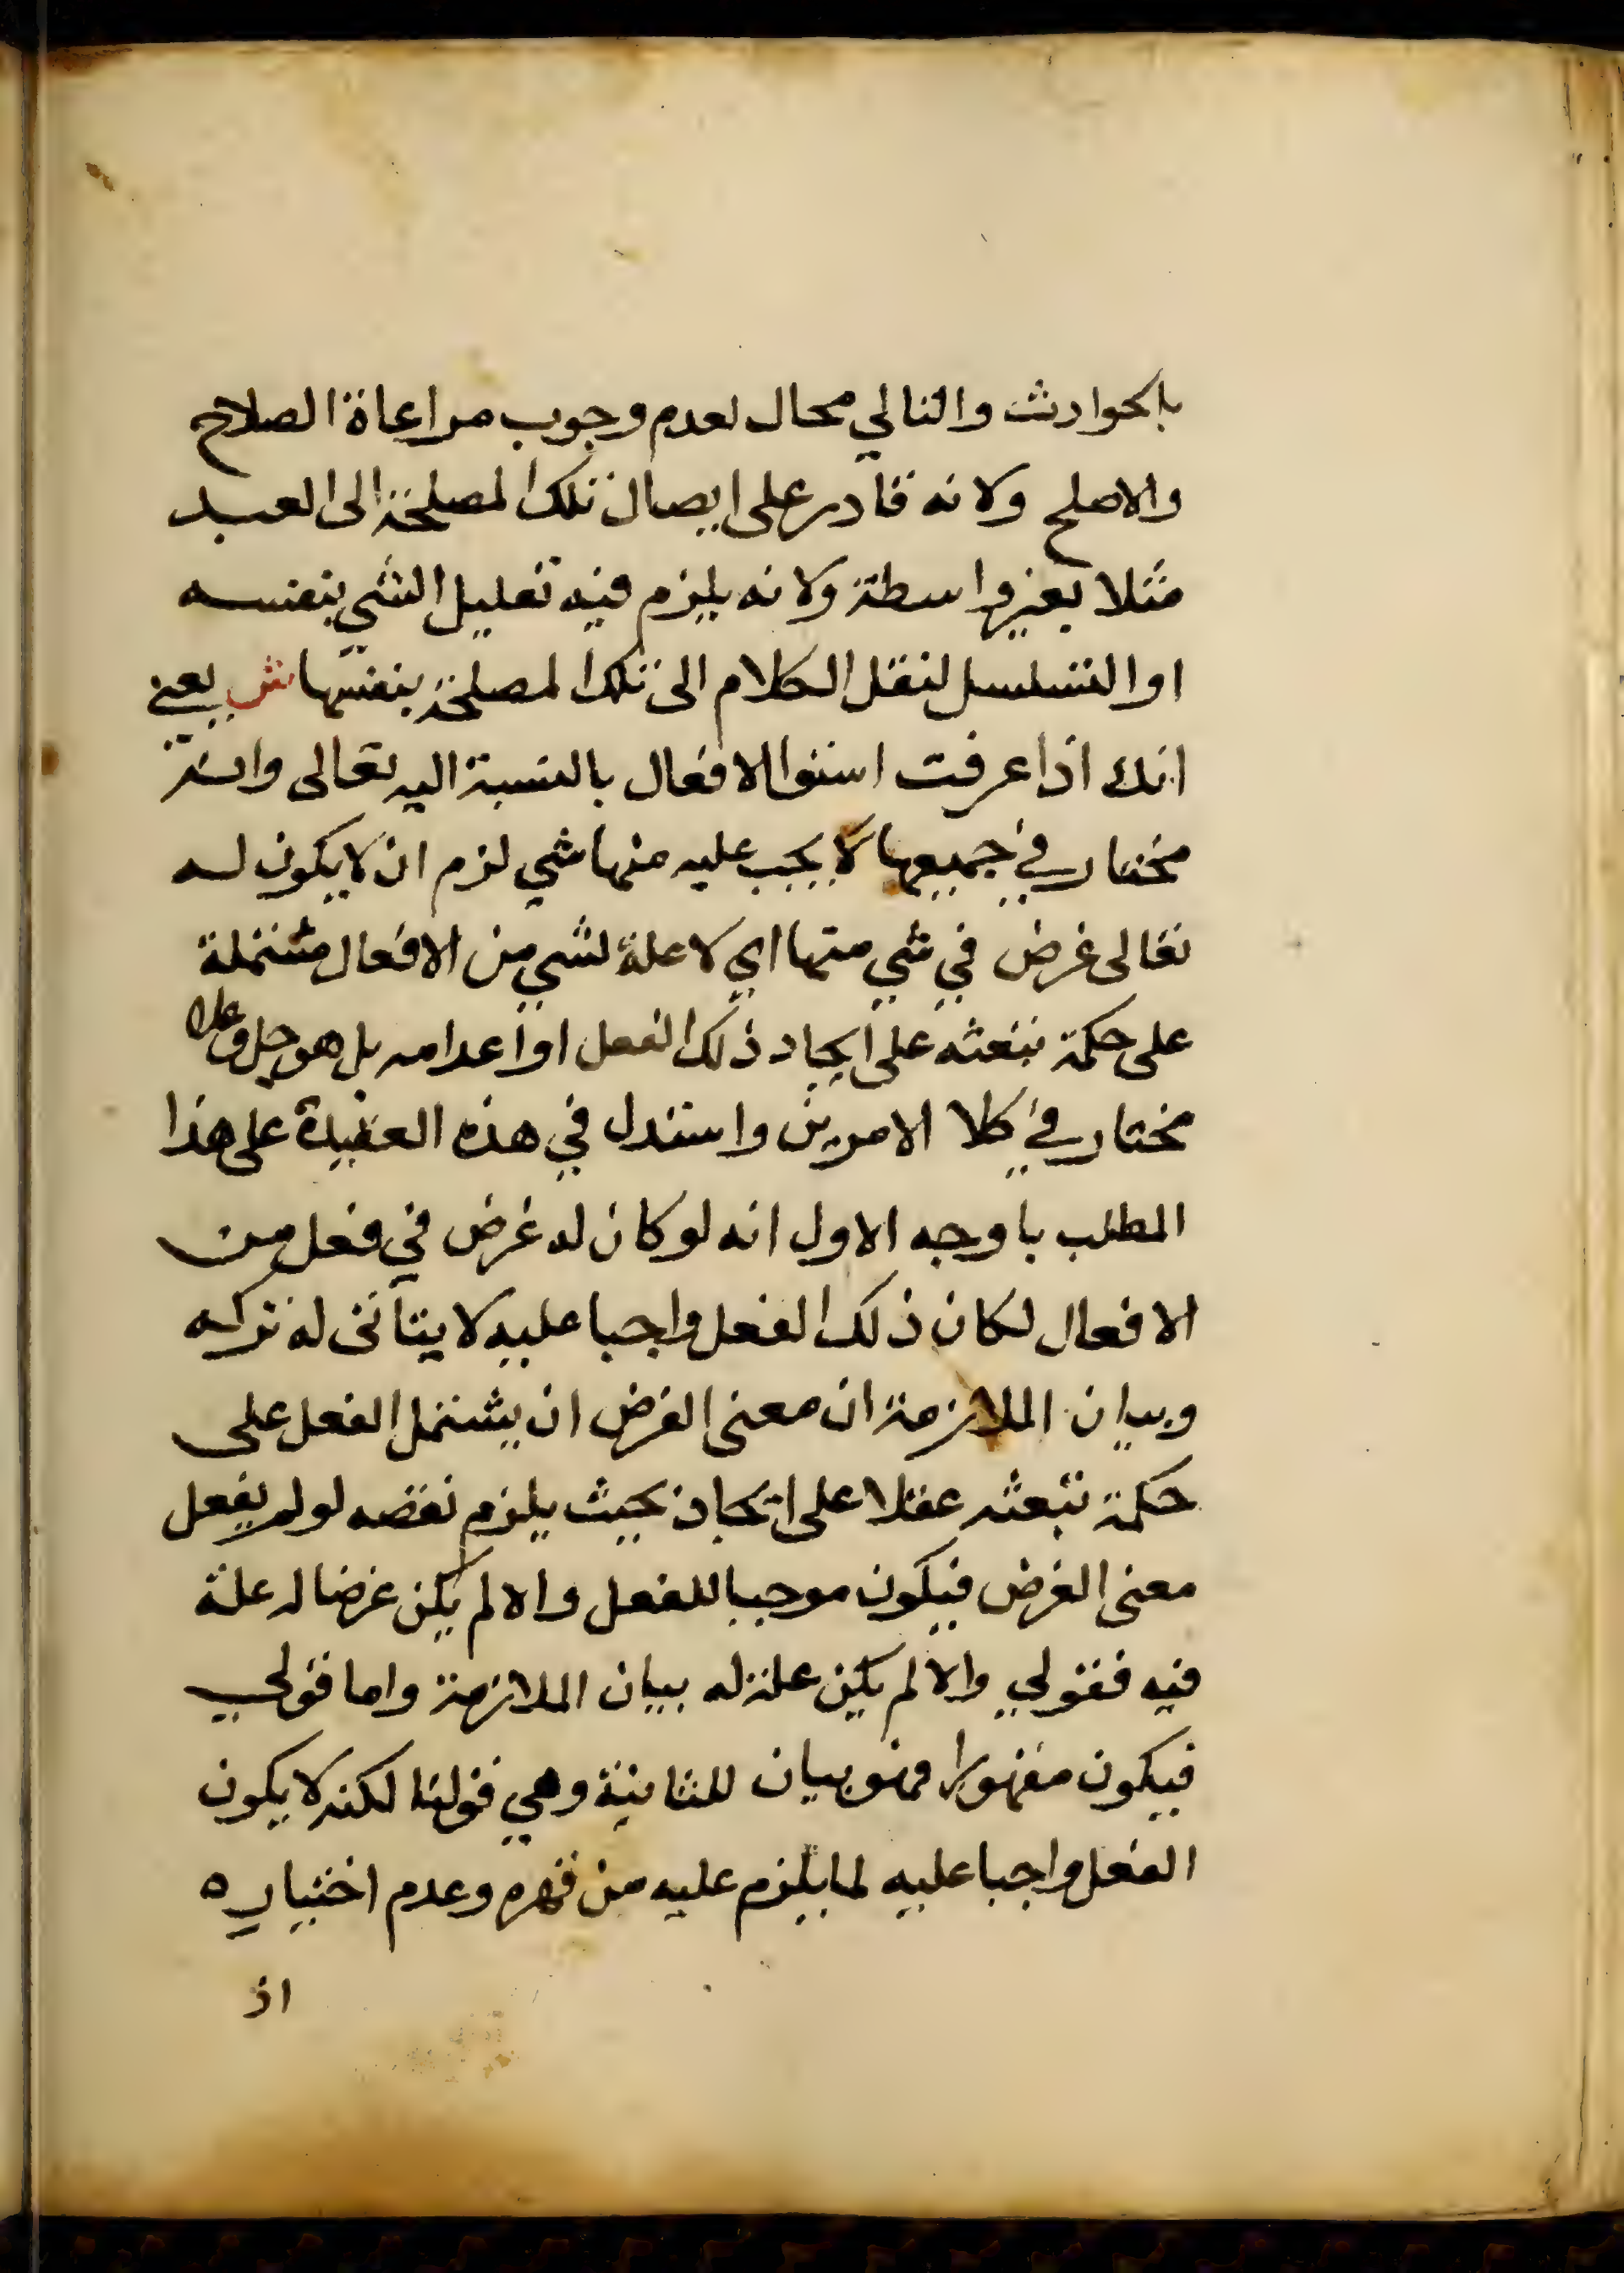 بالحوادث والتالي محال لعدم وجوب مراعاة الصلاح
والاصلح ولانه قادر على ايصال تلك المصلحة الى العبد
مثلا بغير واسطة ولانه يلزم فيه تعليل الشي بنفسه
او التسلسل لنقل الكلام الى تلك المصلحة بنفسها ش يعني
انك اذا عرفت استوا الافعال بالنسبة اليه تعالى وانه
مختار في جميعها لا يجب عليه منها شي لزم ان لا يكون له
تعالى غرض في شي منها اي لا علة لشي من الافعال مشتملة
على حكمة تبعثه على ايجاد ذلك الفعل او اعدامه بل هو جل وعلا
مختار في كلا الامرين واستدل في هذه العقيدة على هذا
المطلب باوجه الاول انه لو كان له غرض في فعل من
الافعال لكان ذلك الفعل واجبا عليه لا يتاتى له تركه
وبيان الملازمة ان معنى الغرض ان يشتمل الفعل على
حكمة تبعثه عقلا على ايجاد بحيث يلزم نقضه لو لم يفعل
معنى الغرض فيكون موجبا للفعل والا لم يكن غرضا له علة
فيه فقولي والا لم يكن علة له بيان الملازمة واما قولي
فيكون مقهورا فهو بيان للثانية وهي قولنا لكنه لا يكون
الفعل واجبا عليه لما يلزم عليه من قهره وعدم اختياره
اذ